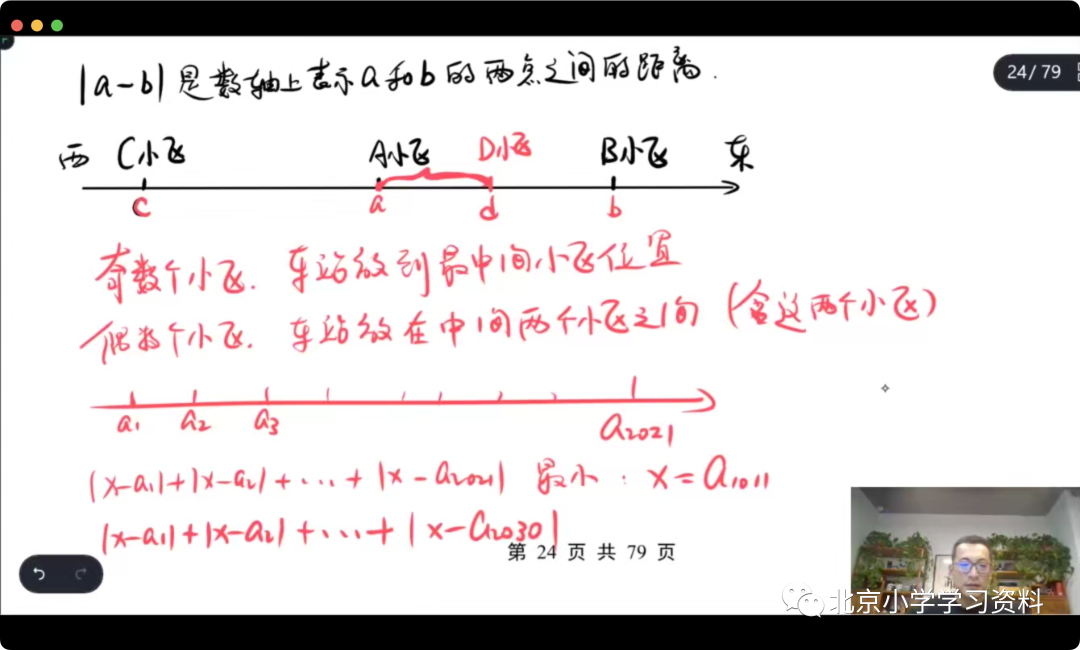 |a-b| 是数轴上表示a和b的两点之间的距离.
24/ 79
西 C小飞 A小飞 D小飞 B小飞 东
c a d b
奇数个小飞. 车站放到最中间小飞位置
偶数个小飞. 车站放在中间两个小飞之间 (含这两个小飞)
a₁ a₂ a₃ a₂₀₂₁
|x-a₁|+|x-a₂|+...+|x-a₂₀₂₁| 最小: x=a₁₀₁₁
|x-a₁|+|x-a₂|+...+|x-a₂₀₃₀|
第 24 页 共 79 页
北京小学学习资料